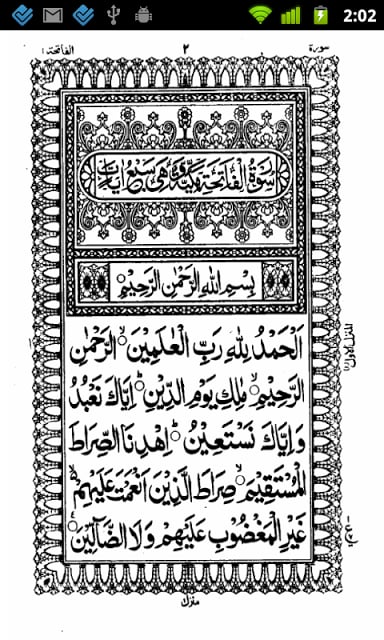 2:02
سورة ٢ الفاتحة ١
سورة الفاتحة مكية وهي سبع ايات
بِسْمِ اللهِ الرَّحْمٰنِ الرَّحِيْمِ
اَلْحَمْدُ لِلّٰهِ رَبِّ الْعٰلَمِيْنَ ۙ الرَّحْمٰنِ
الرَّحِيْمِ ۙ مٰلِكِ يَوْمِ الدِّيْنِ ؕ اِيَّاكَ نَعْبُدُ
وَاِيَّاكَ نَسْتَعِيْنُ ؕ اِهْدِنَا الصِّرَاطَ
الْمُسْتَقِيْمَ ۙ صِرَاطَ الَّذِيْنَ اَنْعَمْتَ عَلَيْهِمْ ۙ
غَيْرِ الْمَغْضُوْبِ عَلَيْهِمْ وَلَا الضَّآلِّيْنَ
المنزل الاول
منزل